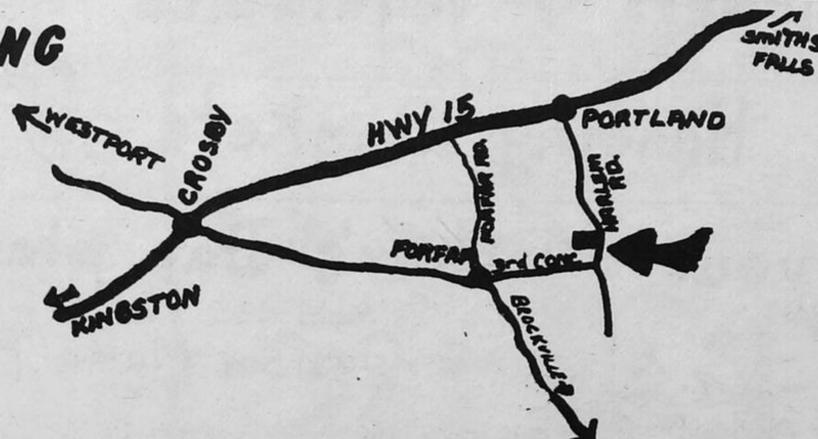 NG
SMITHS
FALLS
WESTPORT
CROSBY
HWY 15
PORTLAND
FORFAR RD.
HARLEM
RD.
FORFAR
3rd CONC.
KINGSTON
BROCKVILLE